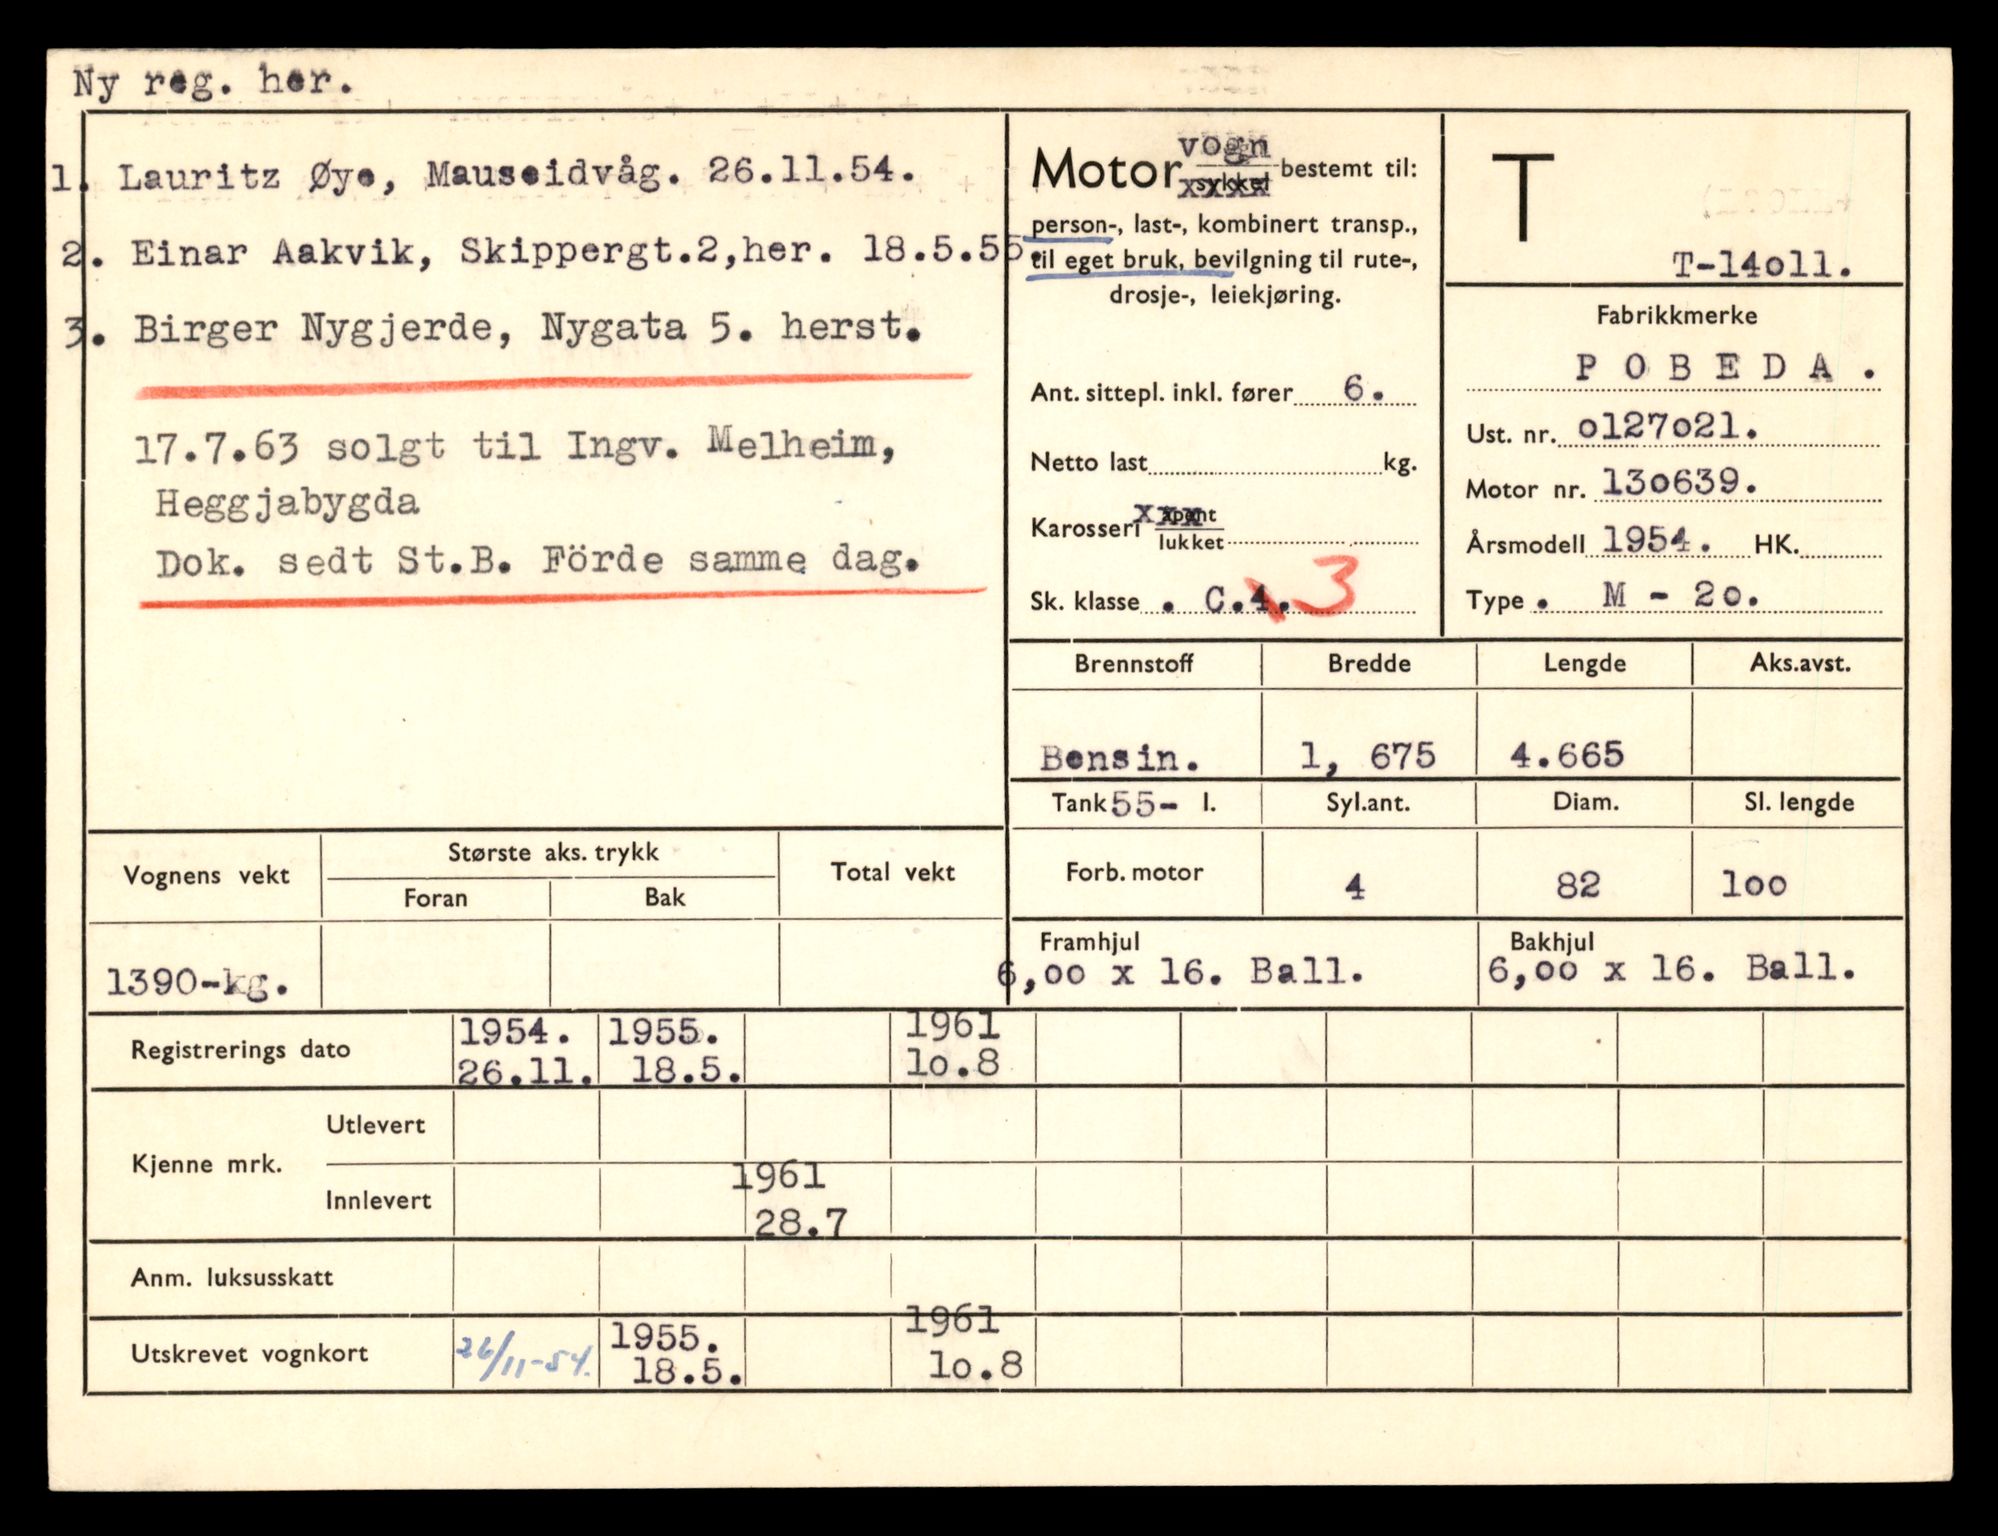 Ny reg. her.
1. Lauritz Øye, Mauseidvåg. 26.11.54.
2. Einar Aakvik, Skippergt.2,her. 18.5.55.
3. Birger Nygjerde, Nygata 5. herst.
17.7.63 solgt til Ingv. Melheim,
Heggjabygda
Dok. sedt St.B. Förde samme dag.
Motor vogn sykkel bestemt til:
person-, last-, kombinert transp.,
til eget bruk, bevilgning til rute-,
drosje-, leiekjøring.
Ant. sittepl. inkl. fører 6.
Netto last kg.
Karosseri åpent lukket
Sk. klasse . C.4. 3
T
T-14o11.
Fabrikkmerke
P O B E D A .
Ust. nr. o127o21.
Motor nr. 13o639.
Årsmodell 1954. HK.
Type . M - 2o.
Brennstoff Bredde Lengde Aks.avst.
Bensin. 1, 675 4.665
Tank 55- l. Syl.ant. Diam. Sl. lengde
Forb. motor 4 82 loo
Framhjul Bakhjul
6,oo x 16. Ball. 6,oo x 16. Ball.
Vognens vekt Største aks. trykk Total vekt
Foran Bak
1390-kg.
Registrerings dato 1954. 1955. 1961
26.11. 18.5. 1o.8
Kjenne mrk. Utlevert
Innlevert 1961
28.7
Anm. luksusskatt
Utskrevet vognkort 26/11-54. 1955. 1961
18.5. 1o.8